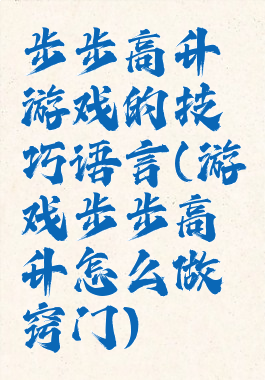 步步高升
游戏的技
巧语言(游
戏步步高
升怎么做
窍门)